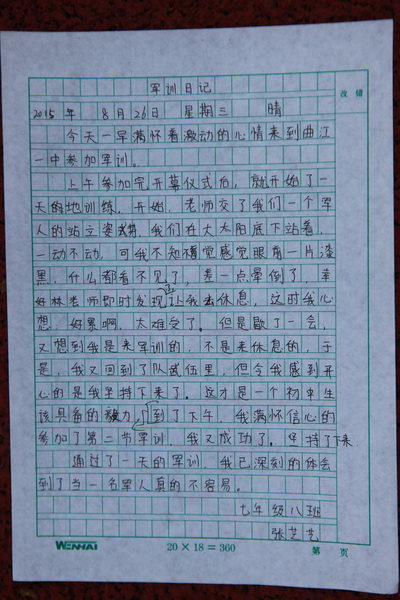 军训日记
改错
2015年 8月26日 星期三 晴
今天一早满怀着激动的心情来到曲江
一中参加军训。
上午参加完开幕仪式后，就开始了一
天的地训练，开始，老师交了我们一个军
人的站立姿势，我们在大太阳底下站着，
一动不动，可我不知不觉感觉眼前一片漆
黑，什么都看不见了，差一点晕倒了，幸
好林老师即时发现，让我去休息，这时我心
想，好累啊，太难受了。但是歇了一会，
又想到我是来军训的，不是来休息的，于
是，我又回到了队伍里，但令我感到开
心的是我坚持下来了。这才是一个初中生
该具备的毅力。到了下午，我满怀信心的
参加了第二节军训，我又成功了。坚持了下来
通过了一天的军训，我已深刻的体会
到了当一名军人真的不容易。
七年级八班
张芝艺
WENHAI 20×18=360 第 页